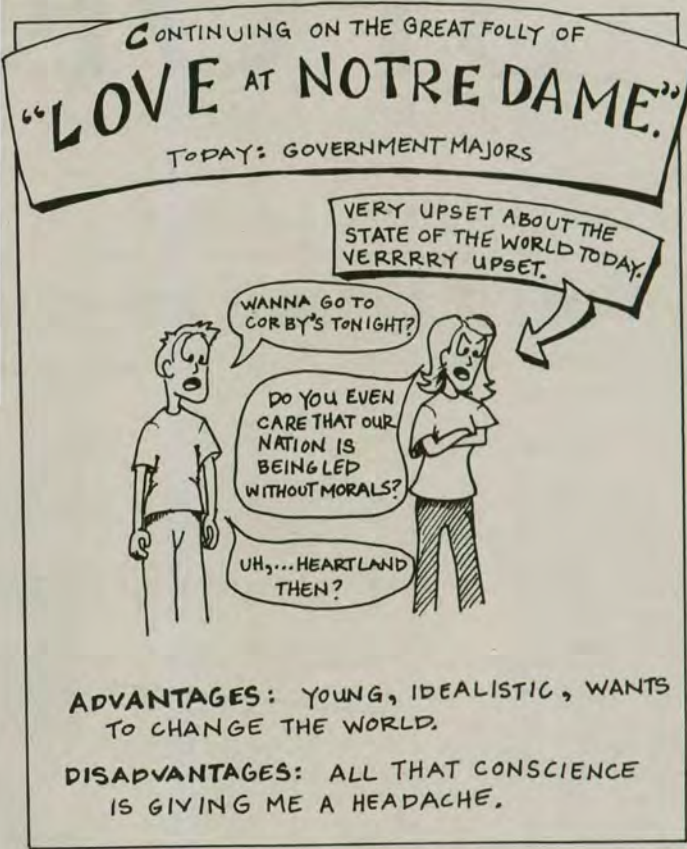 CONTINUING ON THE GREAT FOLLY OF
"LOVE AT NOTRE DAME."
TODAY: GOVERNMENT MAJORS
VERY UPSET ABOUT THE
STATE OF THE WORLD TODAY.
VERRRRY UPSET.
WANNA GO TO
CORBY'S TONIGHT?
DO YOU EVEN
CARE THAT OUR
NATION IS
BEING LED
WITHOUT MORALS?
UH,...HEARTLAND
THEN?
ADVANTAGES: YOUNG, IDEALISTIC, WANTS
TO CHANGE THE WORLD.
DISADVANTAGES: ALL THAT CONSCIENCE
IS GIVING ME A HEADACHE.